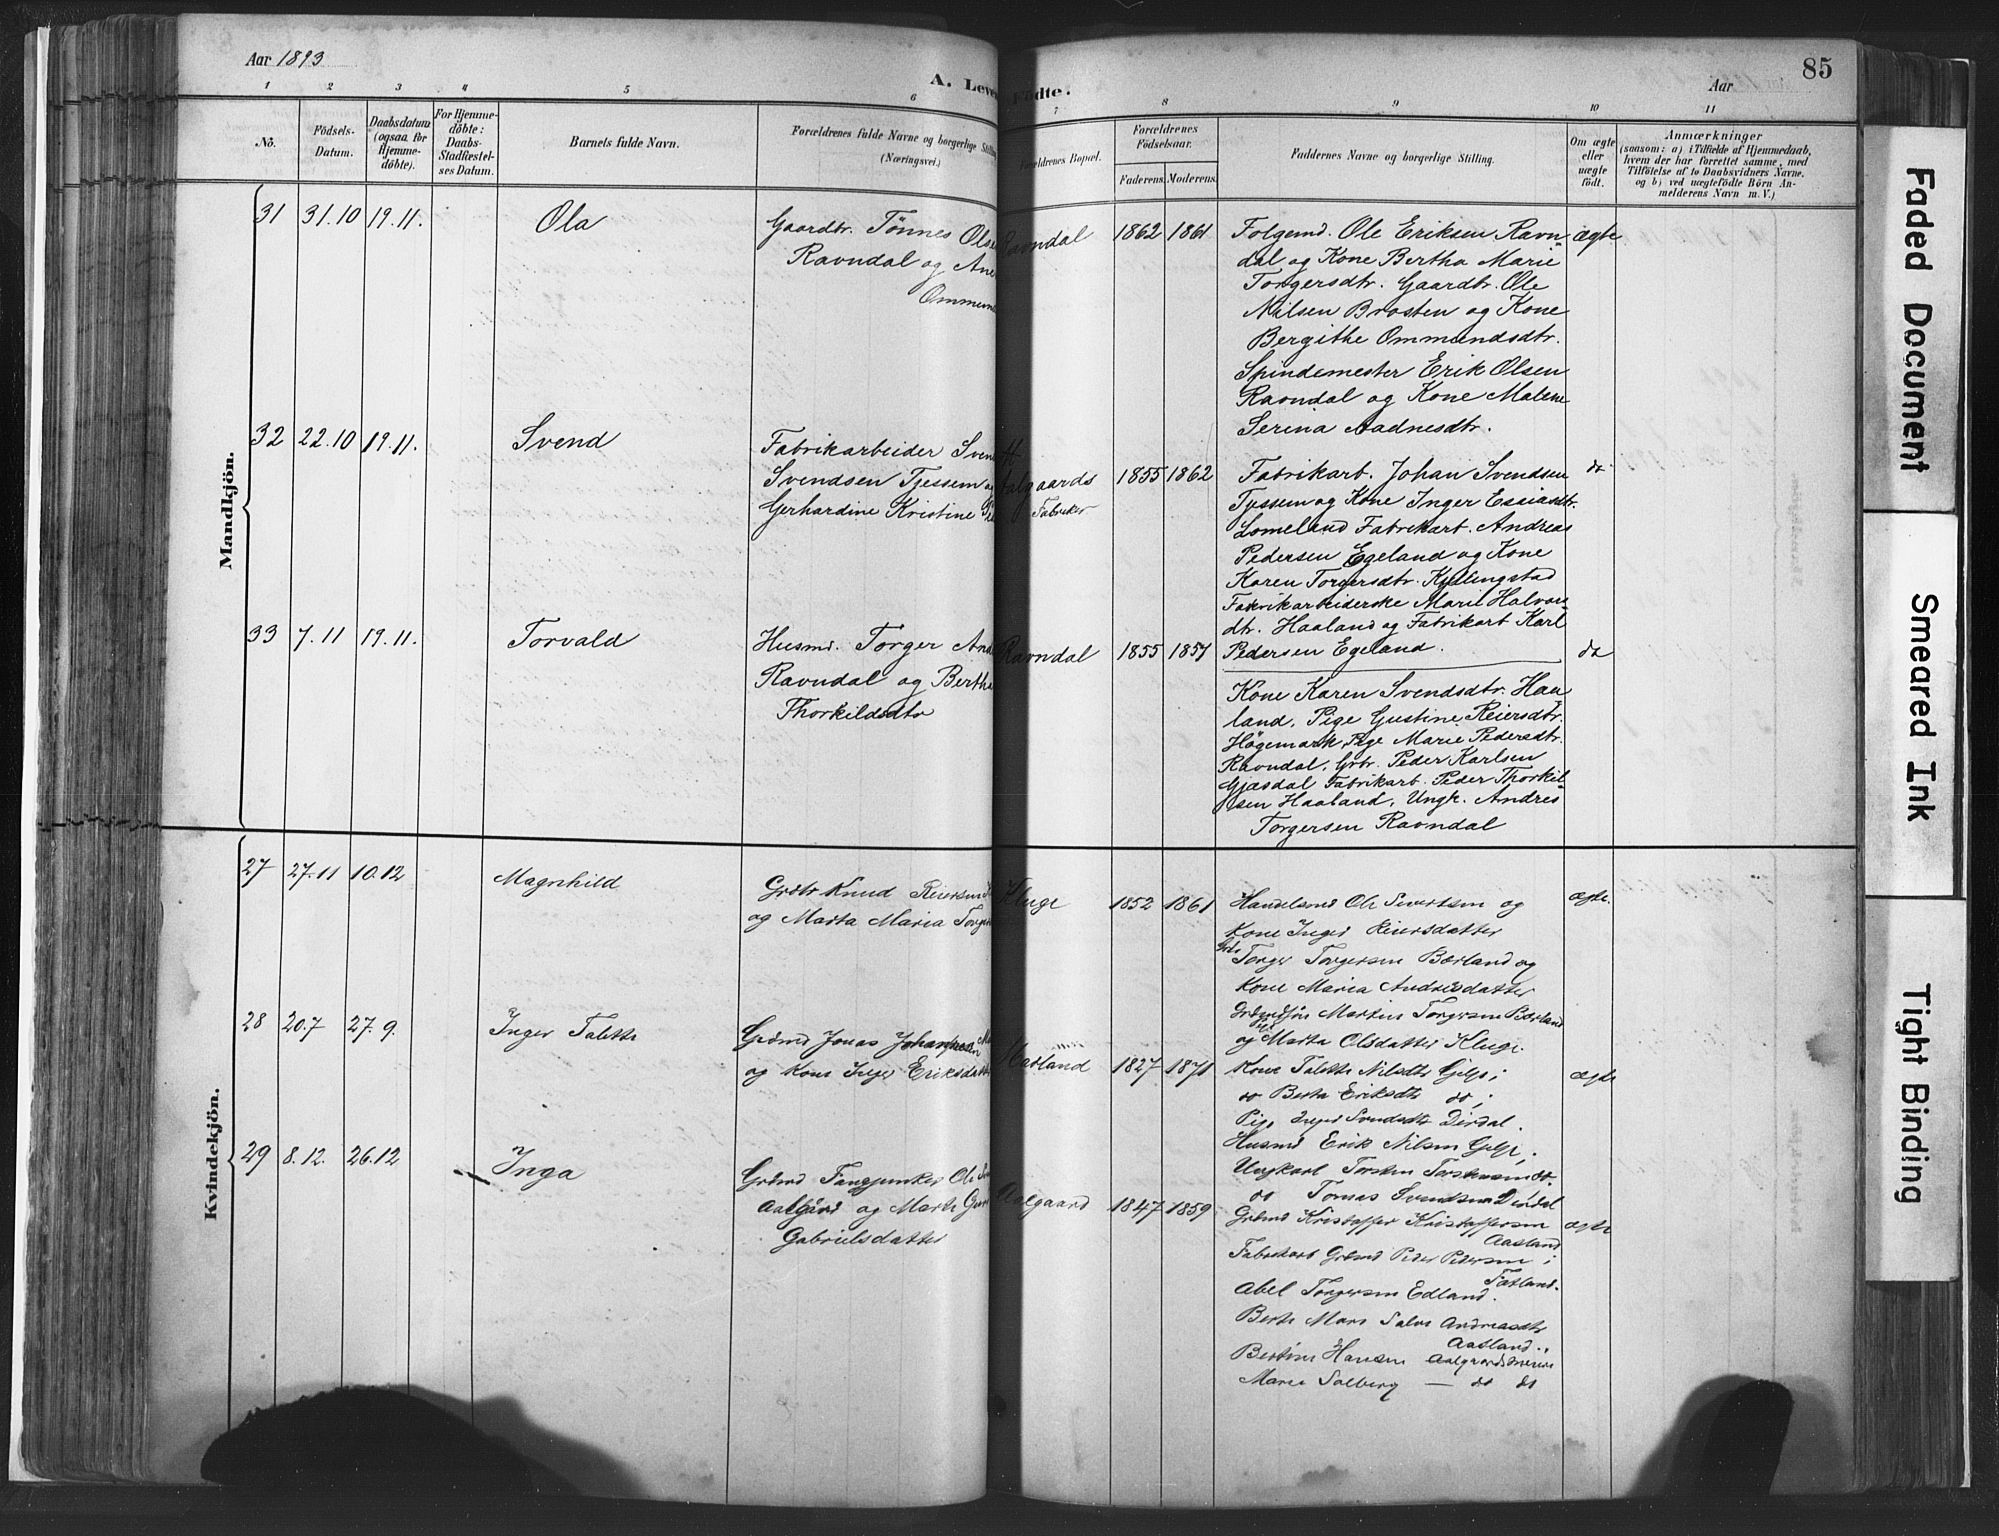 Aar 1893
A. Leve
Födte.
Aar
85
1 2 3 4 5 6 7 8 9 10 11
No.
Födsels-
Datum.
Daabsdatum
(ogsaa for
Hjemme-
döbte).
For Hjemme-
döbte:
Daabs-
Stadfestel-
ses Datum.
Barnets fulde Navn.
Forældrenes fulde Navne og borgerlige Stilling
(Næringsvei.)
Forældrenes Bopæl.
Forældrenes
Födselsaar.
Faderens. Moderens.
Faddernes Navne og borgerlige Stilling.
Om ægte
eller
uægte
födt.
Anmærkninger
(saasom: a) i Tilfælde af Hjemmedaab,
hvem der har forrettet samme, med
Tilföielse af to Daabsvidners Navne.
og b) ved uægtefödte Börn An-
melderens Navn m. V.)
Mandkjön.
31 31.10 19.11. Ola
Gaardbr. Tönnes Olse
Ravndal og Ane
Ommun
Ravndal 1862 1861
Folgemd. Ole Eriksen Ravn-
dal og Kone Bertha Marie
Torgersdtr. Gaardbr. Ole
Nilsen Brosten og Kone
Bergithe Ommundsdtr.
Spindemester Erik Olsen
Ravndal og Kone Malene
Serina Aadnesdtr.
ægte
32 22.10 19.11. Svend
Fabrikarbeider Sven
Svendsen Tjessem
Gerhardine Kristine
Aalgaards
Fabriker
1855 1862
Fabrikarb. Johan Svendsen
Tjessem og Kone Inger Essiasdtr.
Lomeland Fabrikarb. Andreas
Pedersen Egeland og Kone
Karen Torgersdtr. Kyllingstad
Fabrikarbeiderske Marie Halvors-
dtr. Haaland og Fabrikarb Karl
Pedersen Egeland.
do
33 7.11 19.11. Torvald
Husmd. Torger And
Ravndal og Bertha
Thorkildsdtr
Ravndal 1855 1857
do
Kone Karen Svendsdtr. Haa
land, Pige Gustine Reiersdtr.
Högemark, Pige Marie Pedersdtr.
Ravndal, Grbr. Peder Karlsen
Gjæsdal Fabrikarb. Peder Thorkil-
sen Haaland, Ungk. Andres
Torgersen Ravndal
Kvindekjön.
27 27.11 10.12 Magnhild
Grbr Knud Reiersen
og Marta Maria Torger
Kluge 1852 1861
Handelsmd Ole Sivertsen og
Kone Inger Reiersdatter
Grbr
Torger Torgersen Bærland og
Kone Maria Andresdatter
Martin Torgersen Bærland
og Marta Olsdatter Kluge.
ægte.
28 20.7 27.9. Inger Talette
Grdmd Jonas Johannesen
og Kone Inger Eriksdatter
Madland 1827 1871
Kone Talette Nilsdtr Gilje;
do Berta Eriksdtr do;
Pige Inger Svendsdtr Dirdal.
Husmd Erik Nilsen Gilje;
Ungkarl Torsten Torstensen do.
do Tomas Svendsen Dirdal
ægte
29 8.12. 26.12 Inga
Grdmd Ole
Aalgård og Marte
Gabrielsdatter
Aalgaard 1847 1859
Grdmd Kristoffer Kristoffersen
Aasland
Fabrikarb Grdmd Peder Pedersen;
Fotland.
Abel Torgersen Edland.
Berte Andreasdtr
Aasland.,
Bertine Hansen
Marie Solberg — do do
ægte
Faded Document
Smeared Ink
Tight Binding